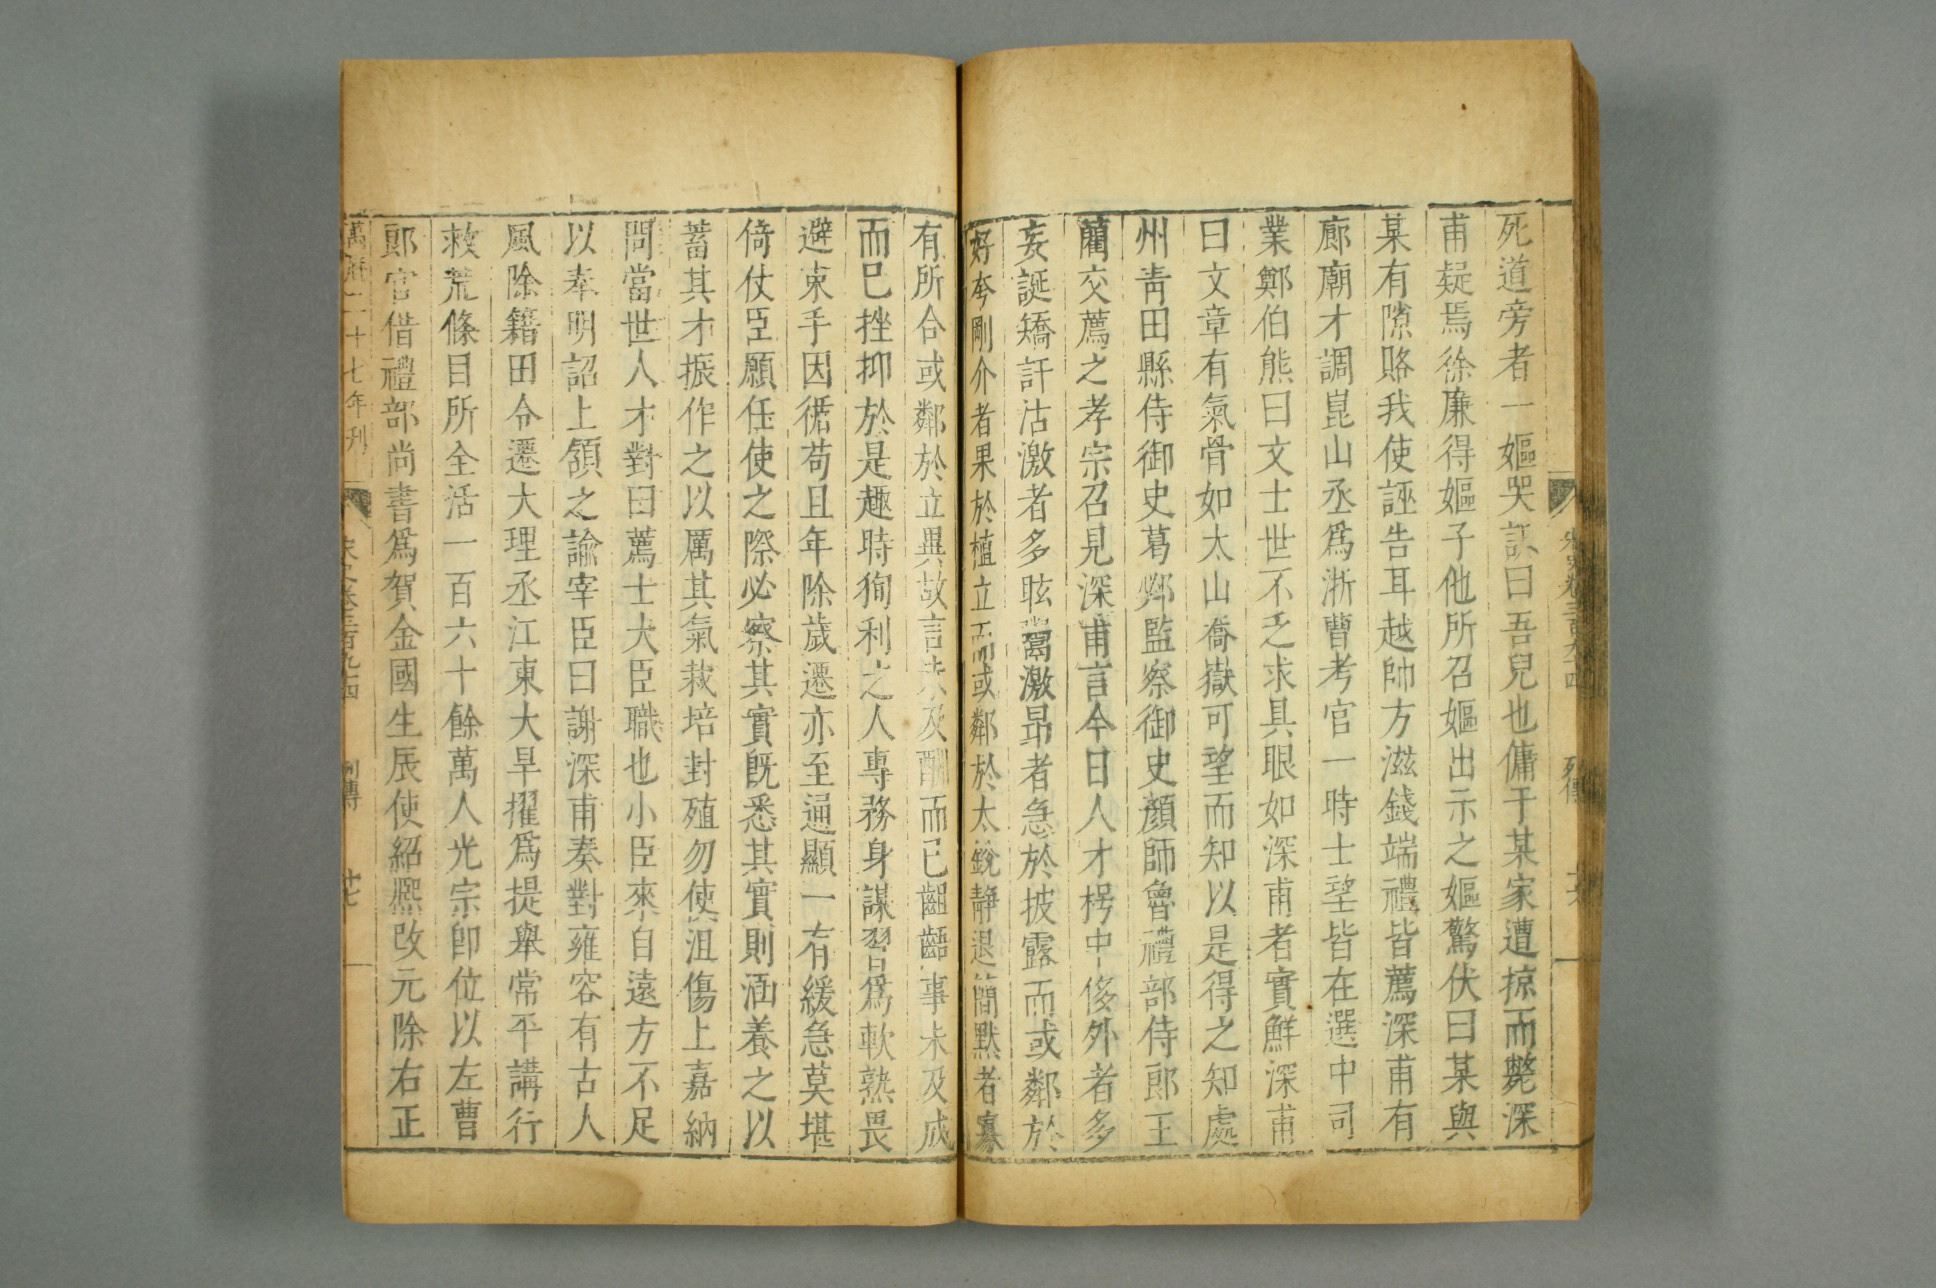 死道旁者一嫗哭訴曰吾兒也傭于某家遭掠而斃深
甫疑焉徐廉得嫗子他所召嫗出示之嫗驚伏曰某與
某有隙賂我使誣告耳越帥方滋錢端禮皆薦深甫有
廊廟才調崑山丞爲浙曹考官一時士望皆在選中司
業鄭伯熊曰文士世不乏求具眼如深甫者實鮮深甫
曰文章有氣骨如太山喬嶽可望而知以是得之知處
州靑田縣侍御史葛邲監察御史顏師魯禮部侍郎王
藺交薦之孝宗召見深甫言今日人才枵中侈外者多
妄誕矯訐沽激者多眩鬻激昻者急於披露而或鄰於
好夸剛介者果於植立而或鄰於太銳靜退簡默者寡
有所合或鄰於立異故言未及酬而已齟齬事未及成
而已挫抑於是趣時徇利之人專務身謀習爲軟熟畏
避束手因循苟且年除歲遷亦至通顯一有緩急莫堪
倚仗臣願任使之際必察其實旣悉其實則涵養之以
蓄其才振作之以厲其氣栽培封殖勿使沮傷上嘉納
問當世人才對曰薦士大臣職也小臣來自遠方不足
以奉明詔上頷之諭宰臣曰謝深甫奏對雍容有古人
風除籍田令遷大理丞江東大旱擢爲提舉常平講行
救荒條目所全活一百六十餘萬人光宗卽位以左曹
郎官借禮部尚書爲賀金國生辰使紹熈改元除右正
十七年刋
列傳
十七